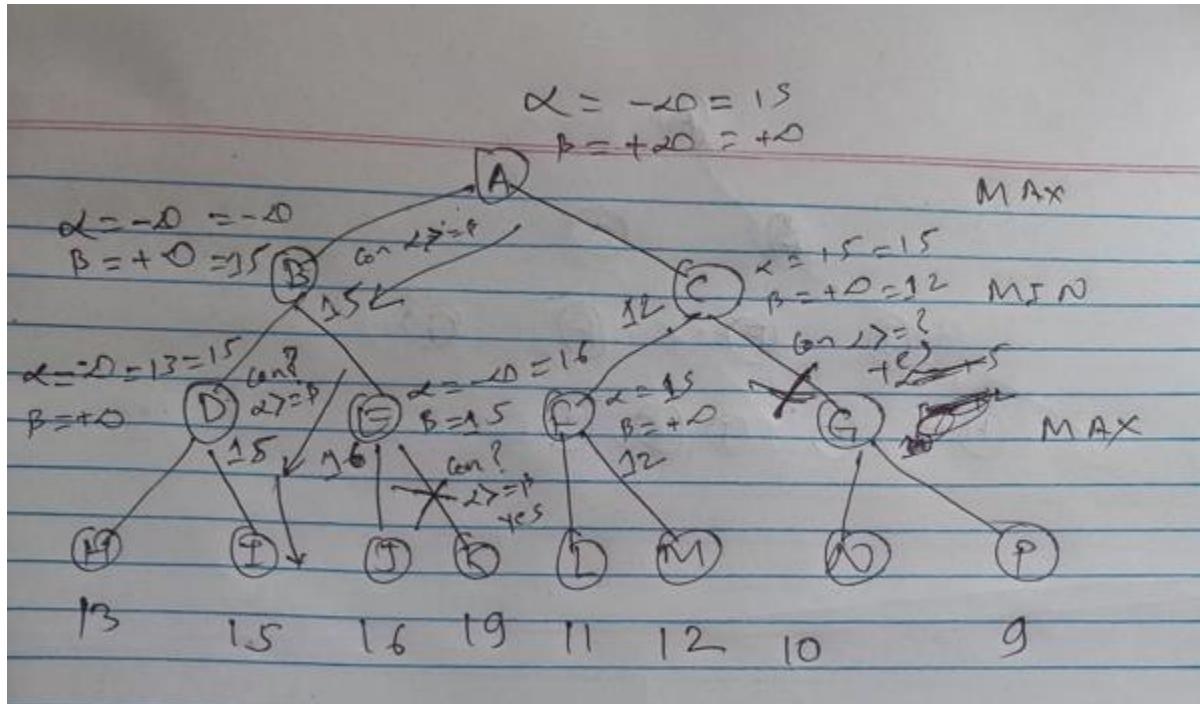 α = -∞ = 15
β = +∞ = +∞
A
MAX
α = -∞ = -∞
β = +∞ = 15
B
con α >= β
15
C
α = +5 = 15
β = +∞ = 12
MIN
12
con α >= ?
α = -∞ = 13 = 15
β = +∞
D
con?
α >= β
15
E
α = -∞ = 16
β = 15
16
con?
α >= β
yes
F
α = 15
β = +∞
12
G
MAX
H I J K L M N P
13 15 16 19 11 12 10 9